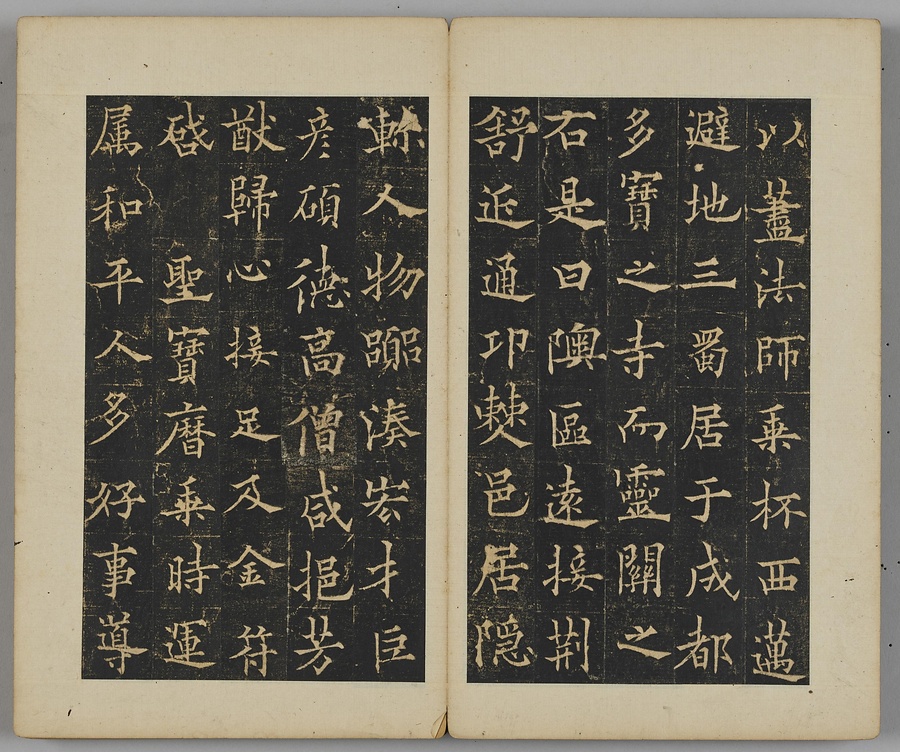 以藎法師乗杯西邁
避地三蜀居于成都
多寶之寺而靈關之
右是曰隩區遠接荆
舒近通卭僰邑居隠
軫人物湊宏才巨
彦碩徳高僧咸挹芳
猷歸心接足及金符
啓聖寶曆乗時運
属和平人多好事導